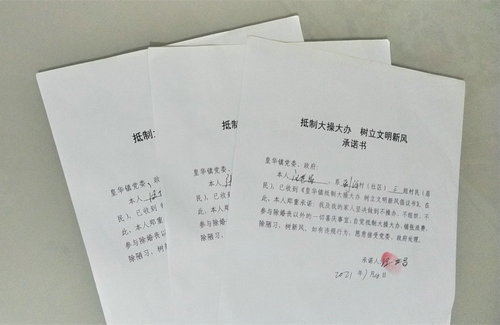 抵制大
皇华镇党委、
本人
民），已收到
此，本人郑重
参与除婚丧
除陋习，树
抵制大操
皇华镇党委、政
本人
民），已收到《
此，本人郑重承
参与除婚丧以
除陋习，树新
抵制大操大办 树立文明新风
承诺书
皇华镇党委、政府：
本人 ，系 村（社区） 组村民（居
民），已收到《皇华镇抵制大操大办 树立文明新风倡议书》，在
此，本人郑重承诺：我及我的家人坚决做到不操办、不组织、不
参与除婚丧以外的一切喜庆事宜，自觉抵制大操大办、铺张浪费，
除陋习，树新风，如有违规行为，愿意接受党委、政府处理。
承诺人：
2021年 月 日